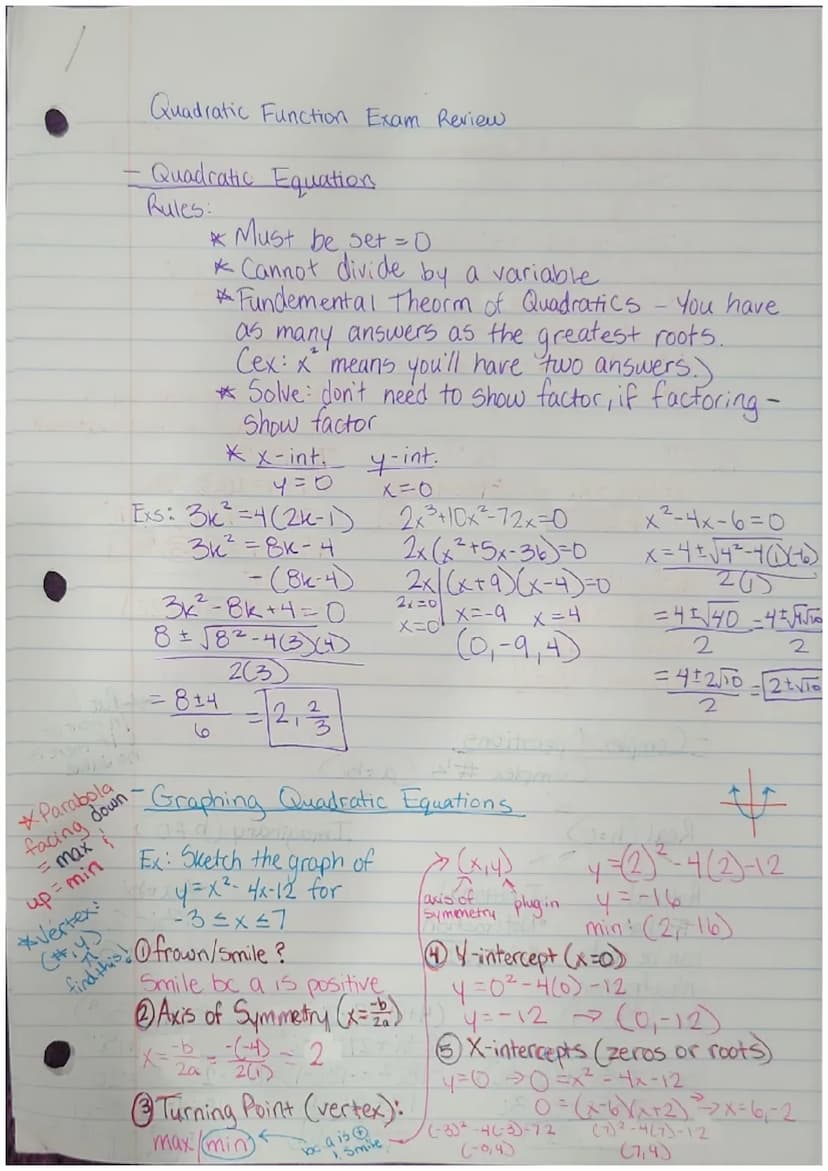 Quadratic Function Exam Review
- Quadratic Equation
Rules:
* Must be set = 0
* Cannot divide by a variable
* Fundemental Theorm of Quadratics - You have
as many answers as the greatest roots.
(ex: x² means you'll have two answers.)
* Solve: don't need to show factor, if factoring -
show factor
* x-int. y-int.
y=0 x=0
Exs: 3k²=4(2k-1)
3k²=8k-4
-(8k-4)
3k²-8k+4=0
8 ± √8²-4(3)(4)
2(3)
= 8±4
6
= 2, 2/3
2x³+10x²-72x=0
2x(x²+5x-36)=0
2x|(x+9)(x-4)=0
2x=0 x=-9 x=4
x=0
(0,-9,4)
x²-4x-6=0
x=4±√4²-4(1)(-6)
2(1)
=4±√40 = 4±√4√10
2 2
=4±2√10 = 2±√10
2
- Graphing Quadratic Equations
* Parabola
facing down
= max ;
up = min
* Vertex:
(#, y)
find this!
Ex: Sketch the graph of
y=x²-4x-12 for
-3≤x≤7
① frown/smile?
Smile bc a is positive
② Axis of Symmetry (x=-b/2a)
x= -b/2a = -(-4)/2(1) = 2
③ Turning Point (vertex):
max/min ← bc a is +
; smile
→ (x,y)
axis of symmetry plug in
y=(2)²-4(2)-12
y=-16
min: (2,-16)
④ Y-intercept (x=0)
y=0²-4(0)-12
y=-12 → (0,-12)
⑤ X-intercepts (zeros or roots)
y=0 → 0=x²-4x-12
0=(x-6)(x+2) → x=6,-2
(-3)²-4(-3)-12 (7)²-4(7)-12
(7,4)